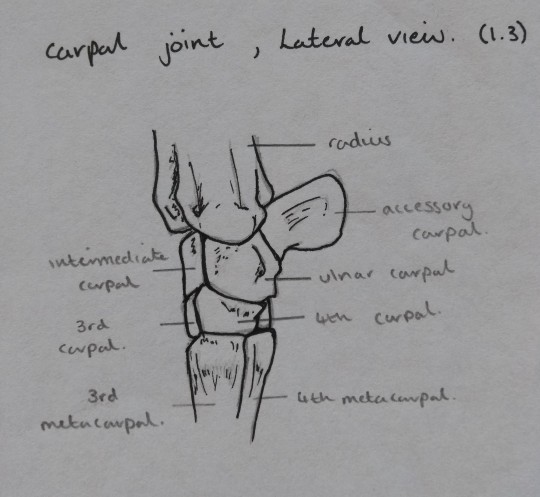 carpal joint , Lateral view. (1.3)
radius
accessory
carpal.
intermediate
carpal
ulnar carpal
3rd
carpal.
4th carpal.
3rd
metacarpal.
4th metacarpal.